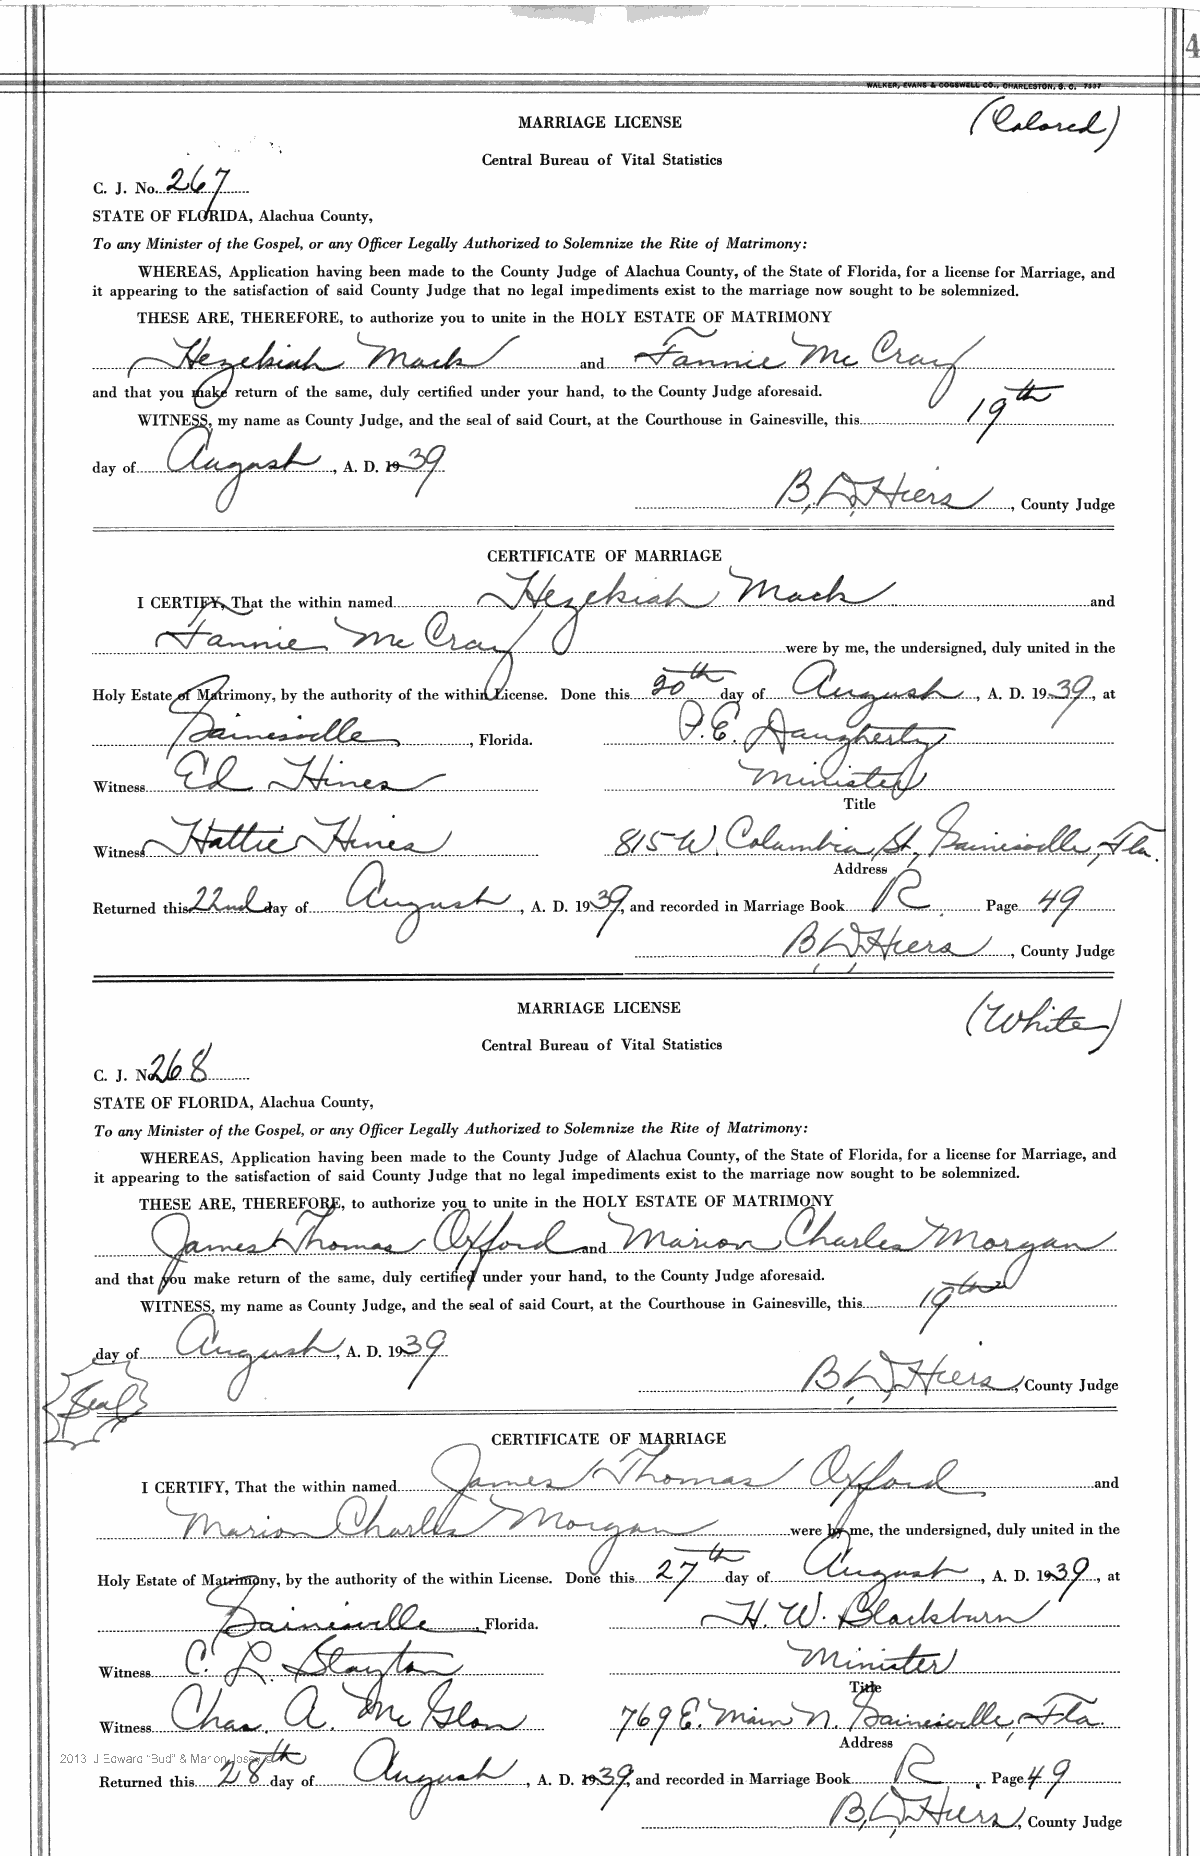 4
WALKER, EVANS & COGSWELL CO., CHARLESTON, S. C. 7337
MARRIAGE LICENSE
(Colored)
Central Bureau of Vital Statistics
C. J. No. 267
STATE OF FLORIDA, Alachua County,
To any Minister of the Gospel, or any Officer Legally Authorized to Solemnize the Rite of Matrimony:
WHEREAS, Application having been made to the County Judge of Alachua County, of the State of Florida, for a license for Marriage, and
it appearing to the satisfaction of said County Judge that no legal impediments exist to the marriage now sought to be solemnized.
THESE ARE, THEREFORE, to authorize you to unite in the HOLY ESTATE OF MATRIMONY
Hezekiah Mack and Fannie McCray
and that you make return of the same, duly certified under your hand, to the County Judge aforesaid.
WITNESS, my name as County Judge, and the seal of said Court, at the Courthouse in Gainesville, this 19th
day of August, A. D. 1939
B. D. Hiers, County Judge
CERTIFICATE OF MARRIAGE
I CERTIFY, That the within named Hezekiah Mack and
Fannie McCray were by me, the undersigned, duly united in the
Holy Estate of Matrimony, by the authority of the within License. Done this 20th day of August, A. D. 1939, at
Gainesville, Florida. P. E. Daugherty
Witness Ed Hines Minister
Title
Witness Hattie Hines 815 W. Columbia St., Gainesville, Fla.
Address
Returned this 22nd day of August, A. D. 1939, and recorded in Marriage Book R. Page 49
B. D. Hiers, County Judge
MARRIAGE LICENSE
(White)
Central Bureau of Vital Statistics
C. J. No. 268
STATE OF FLORIDA, Alachua County,
To any Minister of the Gospel, or any Officer Legally Authorized to Solemnize the Rite of Matrimony:
WHEREAS, Application having been made to the County Judge of Alachua County, of the State of Florida, for a license for Marriage, and
it appearing to the satisfaction of said County Judge that no legal impediments exist to the marriage now sought to be solemnized.
THESE ARE, THEREFORE, to authorize you to unite in the HOLY ESTATE OF MATRIMONY
James Thomas Oxford and Marion Charles Morgan
and that you make return of the same, duly certified under your hand, to the County Judge aforesaid.
WITNESS, my name as County Judge, and the seal of said Court, at the Courthouse in Gainesville, this 19th
day of August, A. D. 1939
B. D. Hiers, County Judge
Seal
CERTIFICATE OF MARRIAGE
I CERTIFY, That the within named James Thomas Oxford and
Marion Charles Morgan were by me, the undersigned, duly united in the
Holy Estate of Matrimony, by the authority of the within License. Done this 27th day of August, A. D. 1939, at
Gainesville, Florida. H. W. Blackburn
Witness C. L. Slayton Minister
Title
Witness Chas. A. McGlon 769 E. Main N. Gainesville, Fla.
Address
2013 J Edward "Bud" & Marion
Returned this 28th day of August, A. D. 1939, and recorded in Marriage Book R. Page 49
B. D. Hiers, County Judge